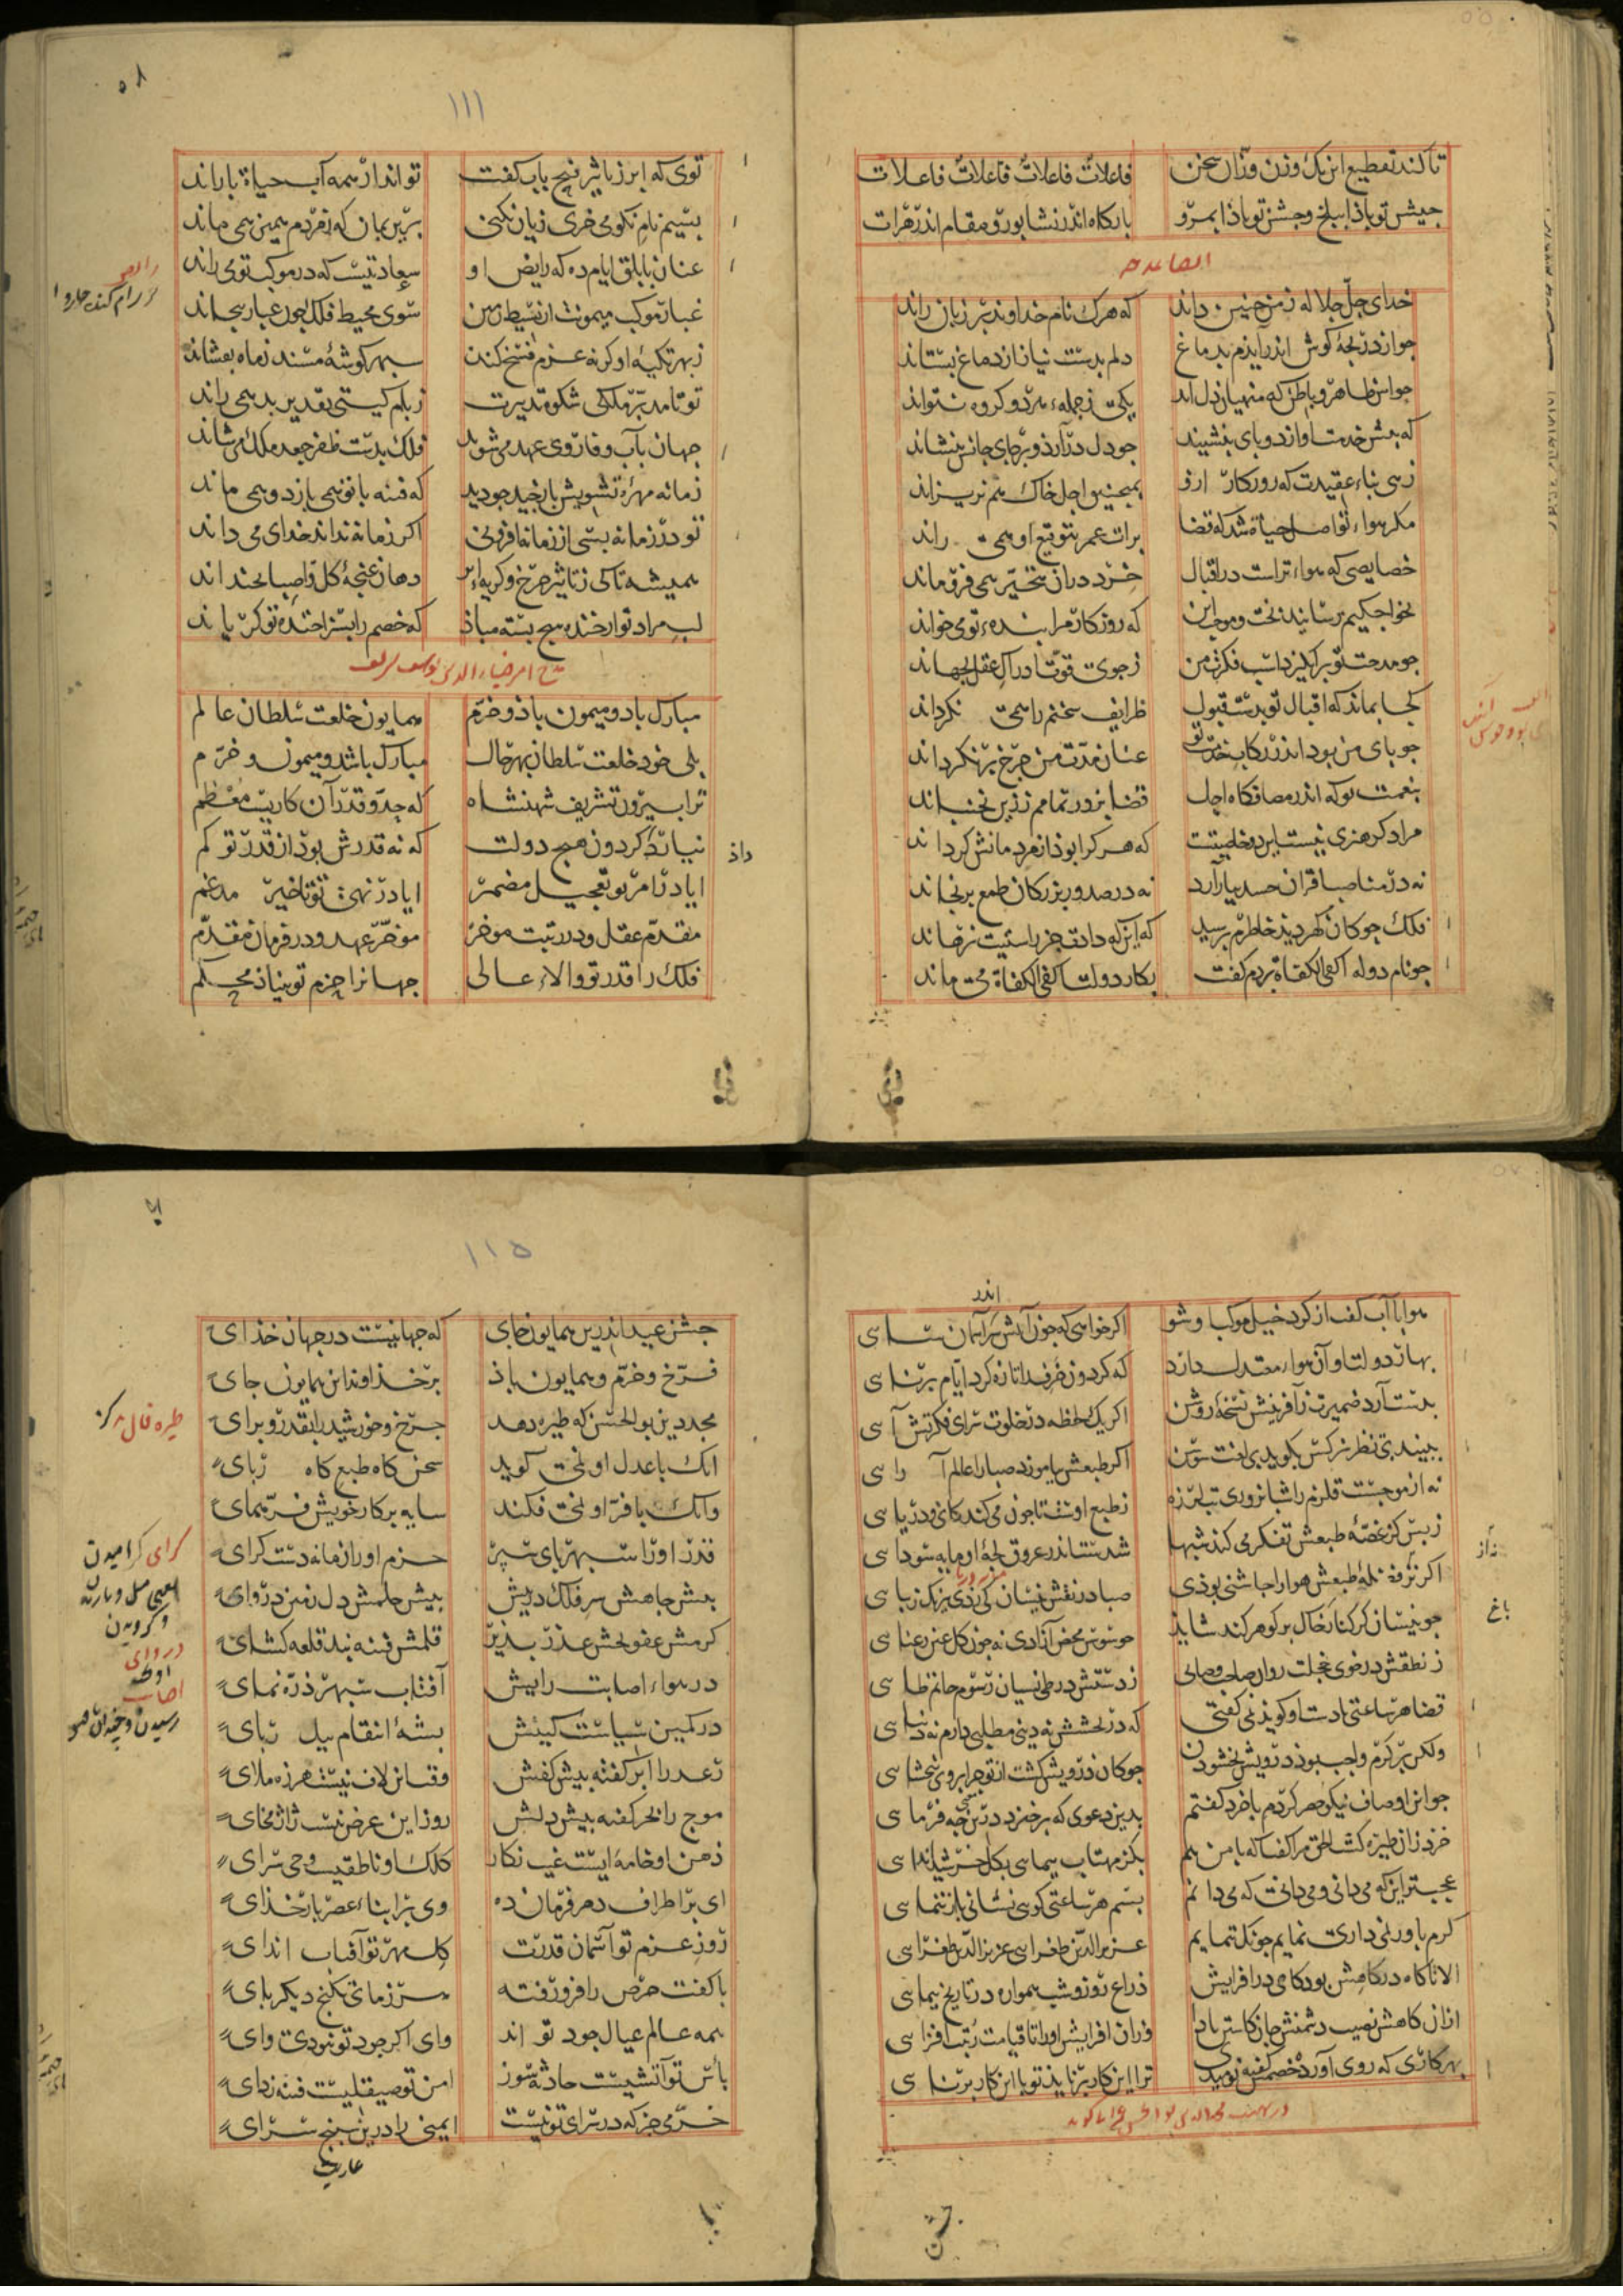 تا کند تقطیع این یک وزن وزان سخن
فاعلاتن فاعلاتن فاعلاتن فاعلات
جیش تو باذا ببلخ و جشن تو باذا بمرو
بارکاه اندر نشابور و مقام اندر هرات
خدای جل جلاله ز من چنین داند
که هرک نام خداوند بر زبان راند
جو از دریجه کوش اندر آیذم بدماغ
دلم بدست نیاز از دماغ بستاند
حواس ظاهر و باطن که منهیان دل اند
یکی ز جمله هر دو کروه نتواند
که بیش خدمت او از دو بای بنشیند
جو دل درآرذ و بر جای جانش بنشاند
زهی بناء عقیدت که روزکار ارو
بمنجنیق اجل خاک هم نریزاند
مکر هواء تو اصل حیاة شد که قضا
برات عمر بتوقیع او همی راند
خصایصی که هواء تراست در اقبال
خرد دران متحیر همی فرو ماند
بخواجکیم رسانید بخت و موجب این
که روزکار مرا بنده تو می خواند
جو مدحت تو برانکیزد اسب فکرت من
ز جوی قوت ادراک عقل بجهاند
کجا بماند که اقبال تو بدست قبول
ظرایف سخنم را همی نکرداند
جو بای من بود اندر رکاب خدمت تو
عنان مدت من جرخ بر نکرداند
بنعمت تو که اندر مصافکاه اجل
قضا بزور تمامم ز زین نجنباند
مراد کر هنری نیست این دو خاصیتست
که هر کرا بوذ از مردمانش کرداند
نه در مناصب اقران حسد بیارارد
نه در صدور بزرکان طمع برنجاند
فلک جو کان کهر دید خاطرم برسید
که این که داد و جز راستیت نرهاند
جو نام دوله اکفی الکفاة بردم کفت
بکار دولت اکفی الکفاة می ماند
۱۱۱
توی که ابر ز تاثیر فتح باب کفت
تواند از همه آب حیاة باراند
بسیم نام نکو می خری زیان نکنی
برین بمان که ز مردم همین همی ماند
عنان بابلق ایام ده که رایض او
سعادتیست که در موکب تو می راند
غبار موکب میمونت از بسیط زمین
سوی محیط فلک جون غبار بجهاند
ز بهر تکیه او کرنه عزم فسخ کند
سبهر کوشه مسند ز ماه بفشاند
تو تا مدبر ملکی شکوه تدبیرت
ز بام کیتی تقدیر بد همی راند
جهان بآب وفا روی عهد می شوید
فلک بدست ظفر جعد ملک می شاند
زمانه مهره تشویش باز جید جو دید
که فتنه با تو همی بازد و همی ماند
تو در زمانه بسی از زمانه افزونی
اکر زمانه نداند خدای می داند
همیشه تا کی ز تاثیر جرخ و کریه ابر
دهان غنجه کل را صبا بخنداند
لب مراد تو از خنده هیج بسته مباذ
که خصم را بسزا خنده تو کریاند
مدح امیر ضیاء الدین یوسف
مبارک باد و میمون باذ و خرم
همایون خلعت سلطان عالم
بلی خود خلعت سلطان بهر حال
مبارک باشد و میمون و خرم
ترا بیرون تشریف شهنشاه
که جد و قدر آن کاریست معظم
نیارد کردون هیج دولت
که نه قدرش بود از قدر تو کم
داذ
ایا در امر تو تعجیل مضمر
ایا در نهی تو تاخیر مدغم
مقدم عقل و در رتبت موخر
موخر عهد و در فرمان مقدم
فلک را قدر تو والاء عالی
جهانرا حزم تو بنیاذ محکم
هوا با آب کف از کرد خیل موکبا وشو
اکر خواهی که جون آتش بر آسمان سای
اندر
بهار دولت او آن هواء معتدل دارد
که کردون خرف را تازه کرد ایام برنای
بدست آرد ضمیرت ز آفرینش نسخه روشن
اکر یک لحظه در خلوت سرای فکرتش آی
ببیند بی نظر نرکس بکوید بی لغت سوسن
اکر طبعش بیاموزد صبا را عالم آرای
نه از موجست قلزم را شبانروزی تب لرزه
ز طبع اوست تا جون می کند کانی و دریای
ز بس کز غصه طبعش تفکر می کند شبها
شدست اندر عروق لجه او مایه سودای
اکر نز فضله طبعش هوا را جاشنی بوذی
صبا در نقش نیسان کی زدی نیرنک زیبای
جو نیسان کر کنار خاک بر کوهر کند شاید
جو سوسن محض آزادی نه جون کل عین رعنای
باغ
ز نطقش در خوی خجلت روان صاحب و صابی
ز دستش در طی نسیان رسوم حاتم طای
قضا هر ساعتی با دست او کوید نمی کفتی
که در بخشش نه دینی مطلبی دارم نه دنیای
ولکن بر کرم واجب بوذ درویش بخشودن
جو کان درویش کشت از تو جرا بروی نبخشای
جو این اوصاف نیکو هر کردم با خرد کفتم
بدین دعوی که برخیزد درین جه فرمای
خرد زان طیره کشت الحق مرا کفتا که با من هم
بکز مهتاب بیمای بکل خرشید اندای
عجبتر این که می دانی و می دانی که می دانم
بسم هر ساعتی کوی نشانی باز ننمای
کرم باور نمی داری نمایم جونک بنمایم
عزیز الدین طغرای عزیز الدین طغرای
الا تا کاه در کاهش بود کاهی در افزایش
ذراع روز و شب همواره در تاریخ بیمای
ازان کاهش نصیب دشمنش جان کاستی بادا
وزان افزایش او را تا قیامت رتبت افزای
بهر کاری که روی آورد خصمش کفته نومیدی
ترا این کار بر ناید تو با این کار بر نای
۱۱۵
جشن عید اندرین همایون جای
که جهانیست در جهان خذای
فرخ و خرم و همایون باذ
بر خذاوند این همایون جای
مجد دین بو الحسن که طیره دهد
جرخ و خورشید را بقدر و برای
آنک با عدل او نمی کوید
سخن کاه طبع کاه ربای
وانک با فر او نمی فکند
سایه بر کار خویش فر همای
قدر او را سبهر بای سبر
حزم او را زمانه دست کرای
بیش جاهش سر فلک در بیش
بیش حلمش دل زمین در وای
کرمش عفو بخش عذر بذیر
قلمش فتنه بند قلعه کشای
در هواء اصابت رایش
آفتاب سبهر ذره نمای
در کمین سیاست کینش
بشه انتقام بیل ربای
رعد را ابر کفته بیش کفش
وقت این لاف نیست هرزه ملای
موج را بحر کفته بیش دلش
روز این عرض نیست ژاژ مخای
ذهن او خامه ایست غیب نکار
کلک او ناطقیست وحی سرای
ای بر اطراف دهر فرمان ده
وی بر ابناء عصر بار خذای
روز عزم تو آسمان قدرت
کل مهر تو آفتاب اندای
با کفت حرص را فرو رفته
هر زمانی بکنج دیکر بای
همه عالم عیال جود تو اند
وای اکر جود تو نبودی وای
باس تو آتشیست حادثه سوز
امن تو صیقلیست فتنه زدای
خرمی جز که در سرای تو نیست
ایمنی را درین سبنج سرای